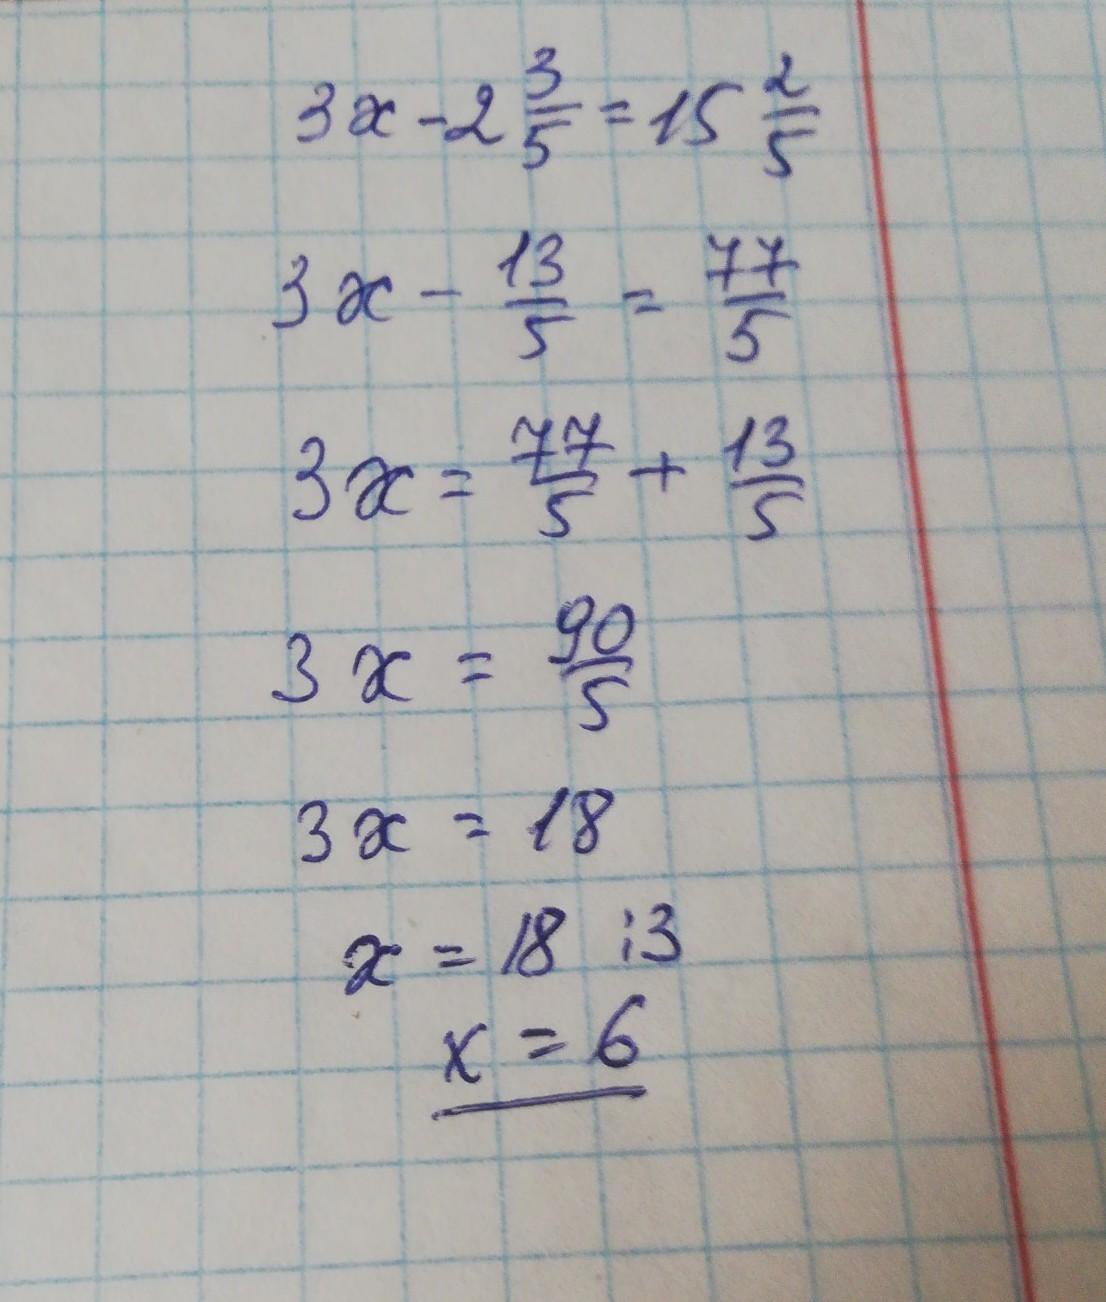 3x - 2 3/5 = 15 2/5
3x - 13/5 = 77/5
3x = 77/5 + 13/5
3x = 90/5
3x = 18
x = 18 : 3
x = 6